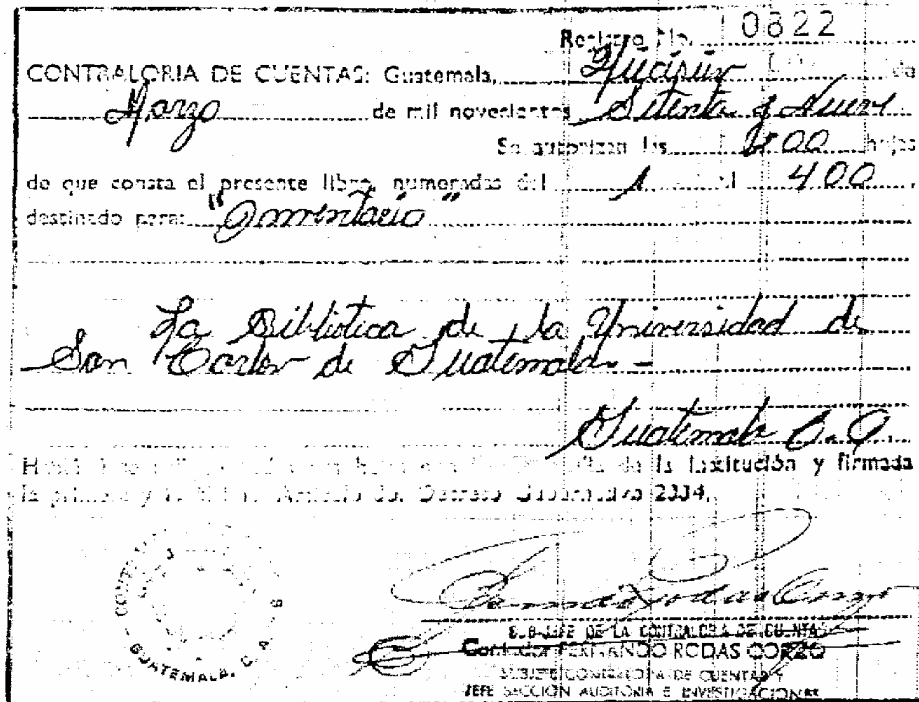 Registro No. 0822
CONTRALORIA DE CUENTAS: Guatemala, de
Marzo de mil novecientos Setenta y Nueve
Se autorizan las 400 hojas
de que consta el presente libro, numeradas del 1 al 400,
destinado para: "Inventario"
La Biblioteca de la Universidad de
San Carlos de Guatemala.-
Guatemala C.A.
de la Institución y firmada
la primera y Decreto Gubernativo 2334.
GUATEMALA, C. A.
SUB-JEFE DE LA CONTRALORIA DE CUENTAS
Contador FERNANDO RODAS CORZO
SUBJEFE CONTRALORIA DE CUENTAS Y
JEFE SECCION AUDITORIA E INVESTIGACIONES